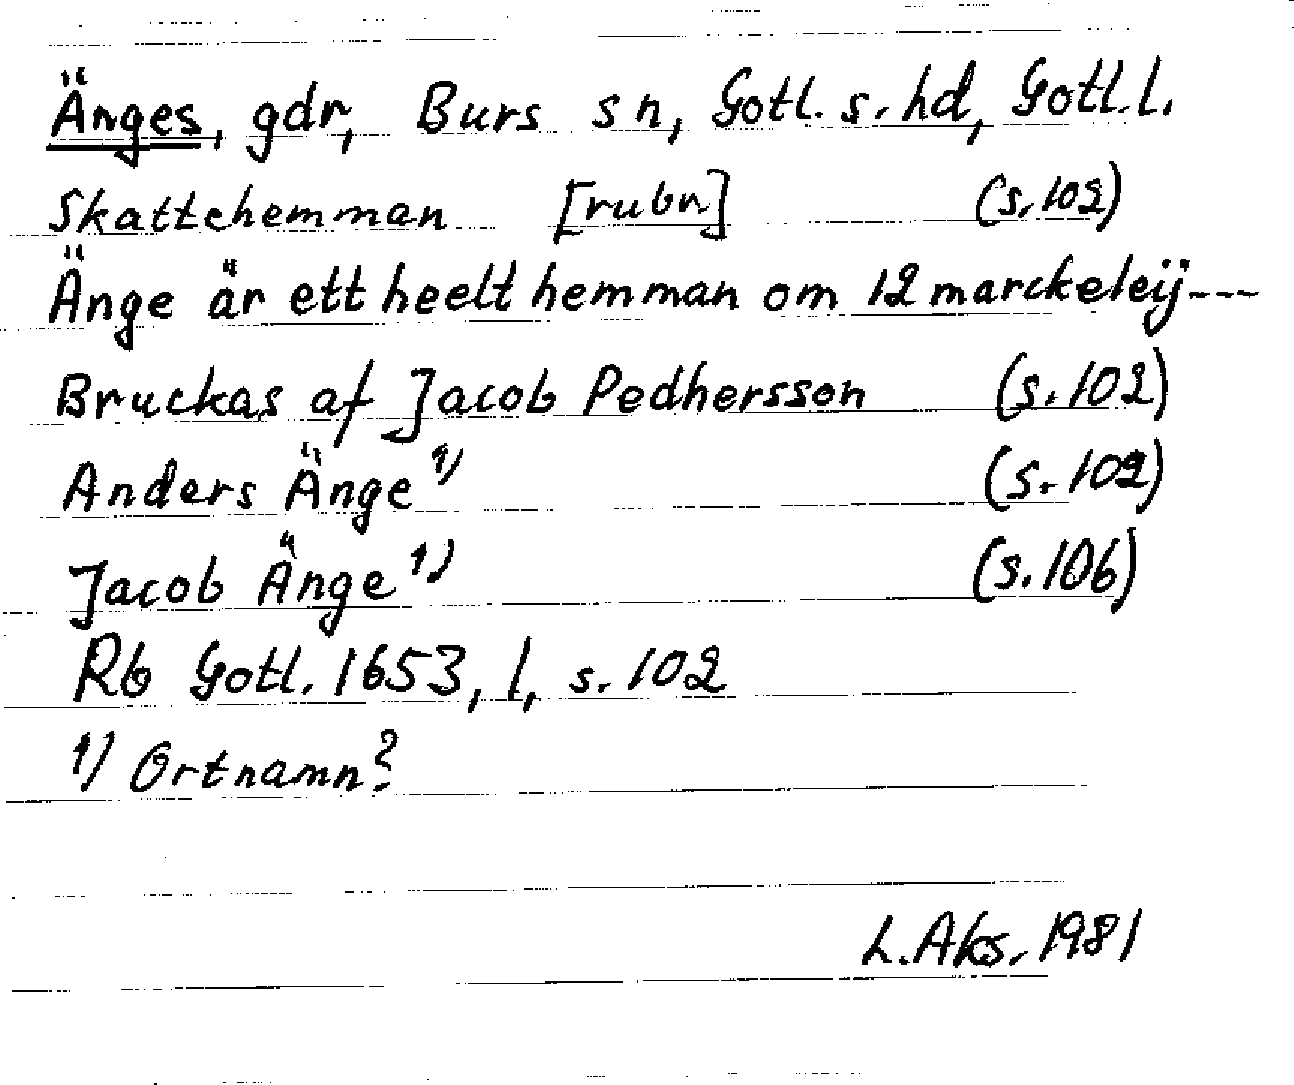 Änges, gdr, Burs sn, Gotl. s. hd, Gotl. l.
Skattehemman [rubr] (s. 102)
Änge är ett heelt hemman om 12 marckeleij---
Bruckas af Jacob Pedhersson (s. 102)
Anders Änge 1) (s. 102)
Jacob Änge 1) (s. 106)
Rb Gotl. 1653, 1, s. 102
1) Ortnamn?
L. Aks. 1981